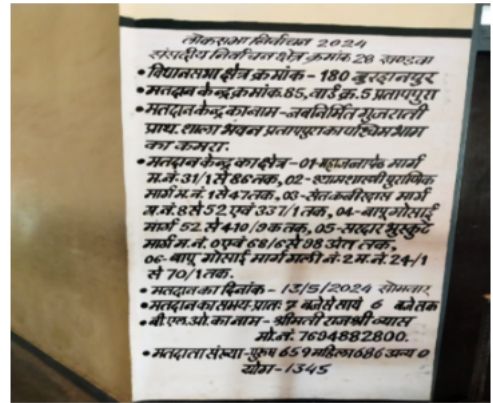 लोकसभा निर्वाचन 2024
संसदीय निर्वाचन क्षेत्र क्रमांक 28 खण्डवा
• विधानसभा क्षेत्र क्रमांक - 180 बुरहानपुर
• मतदान केन्द्र क्रमांक 85, वार्ड क्र. 5 प्रतापपुरा
• मतदान केन्द्र का नाम - नवनिर्मित गुजराती
प्राथ. शाला भवन प्रतापपुरा का पश्चिम भाग
का कमरा.
• मतदान केन्द्र का क्षेत्र - 01- महाजनापेठ मार्ग
म.नं. 31/1 से 86 तक, 02 - श्यामशास्त्री पुराणिक
मार्ग म.नं. 1 से 47 तक, 03 - सेतकबीरदास मार्ग
म.नं. 8 से 52 एवं 337/1 तक, 04 - बापू गोसाई
मार्ग 52 से 410/9क तक, 05 - सरदार भुस्कुटे
मार्ग म.नं. 0 एवं 68/6 से 98 अंत तक,
06 - बापू गोसाई मार्ग गली नं. 2 म.नं. 24/1
से 70/1 तक.
• मतदान का दिनांक - 13/5/2024 सोमवार
• मतदान का समय - प्रातः 7 बजे से सायं 6 बजे तक
• बी.एल.ओ. का नाम - श्रीमती राजश्री व्यास
मो.नं. 7694882800.
• मतदाता संख्या - पुरुष 659 महिला 686 अन्य 0
योग - 1345